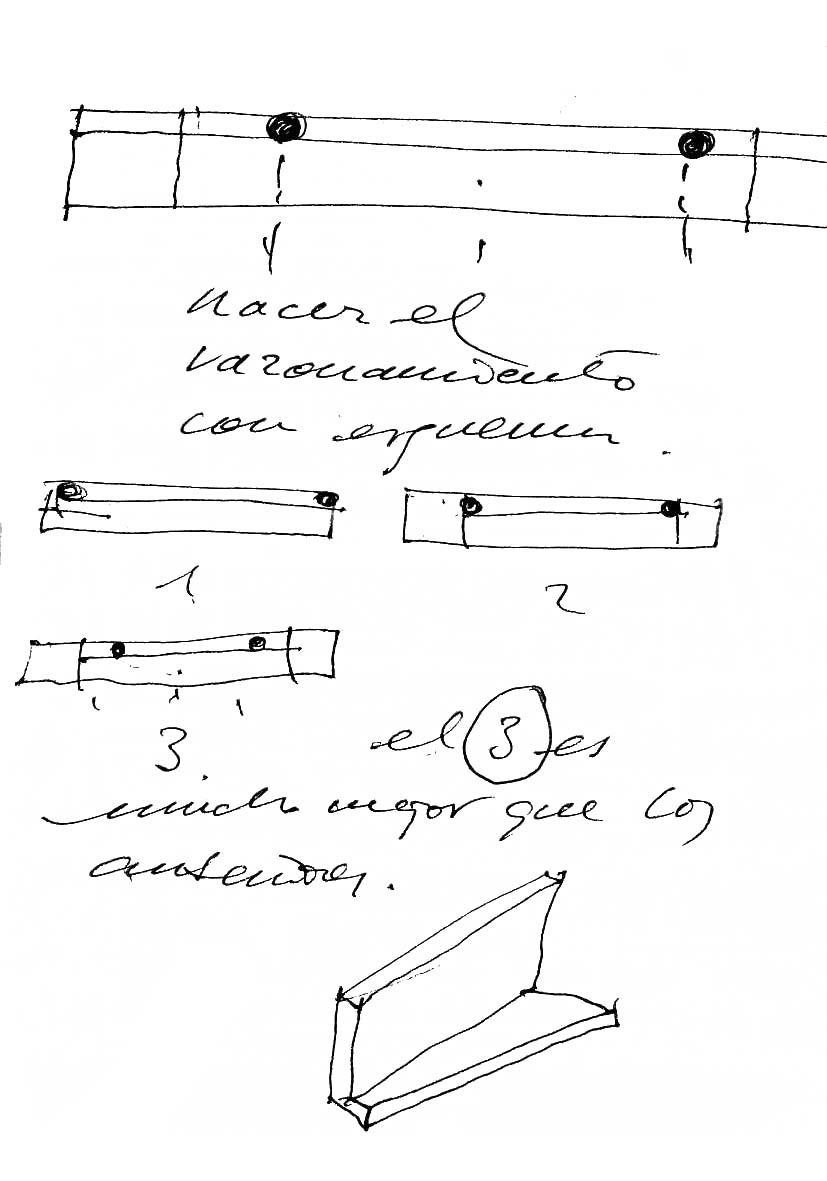 hacer el
razonamiento
con esquema.
1
2
3
el 3 es
mucho mejor que los
anteriores.